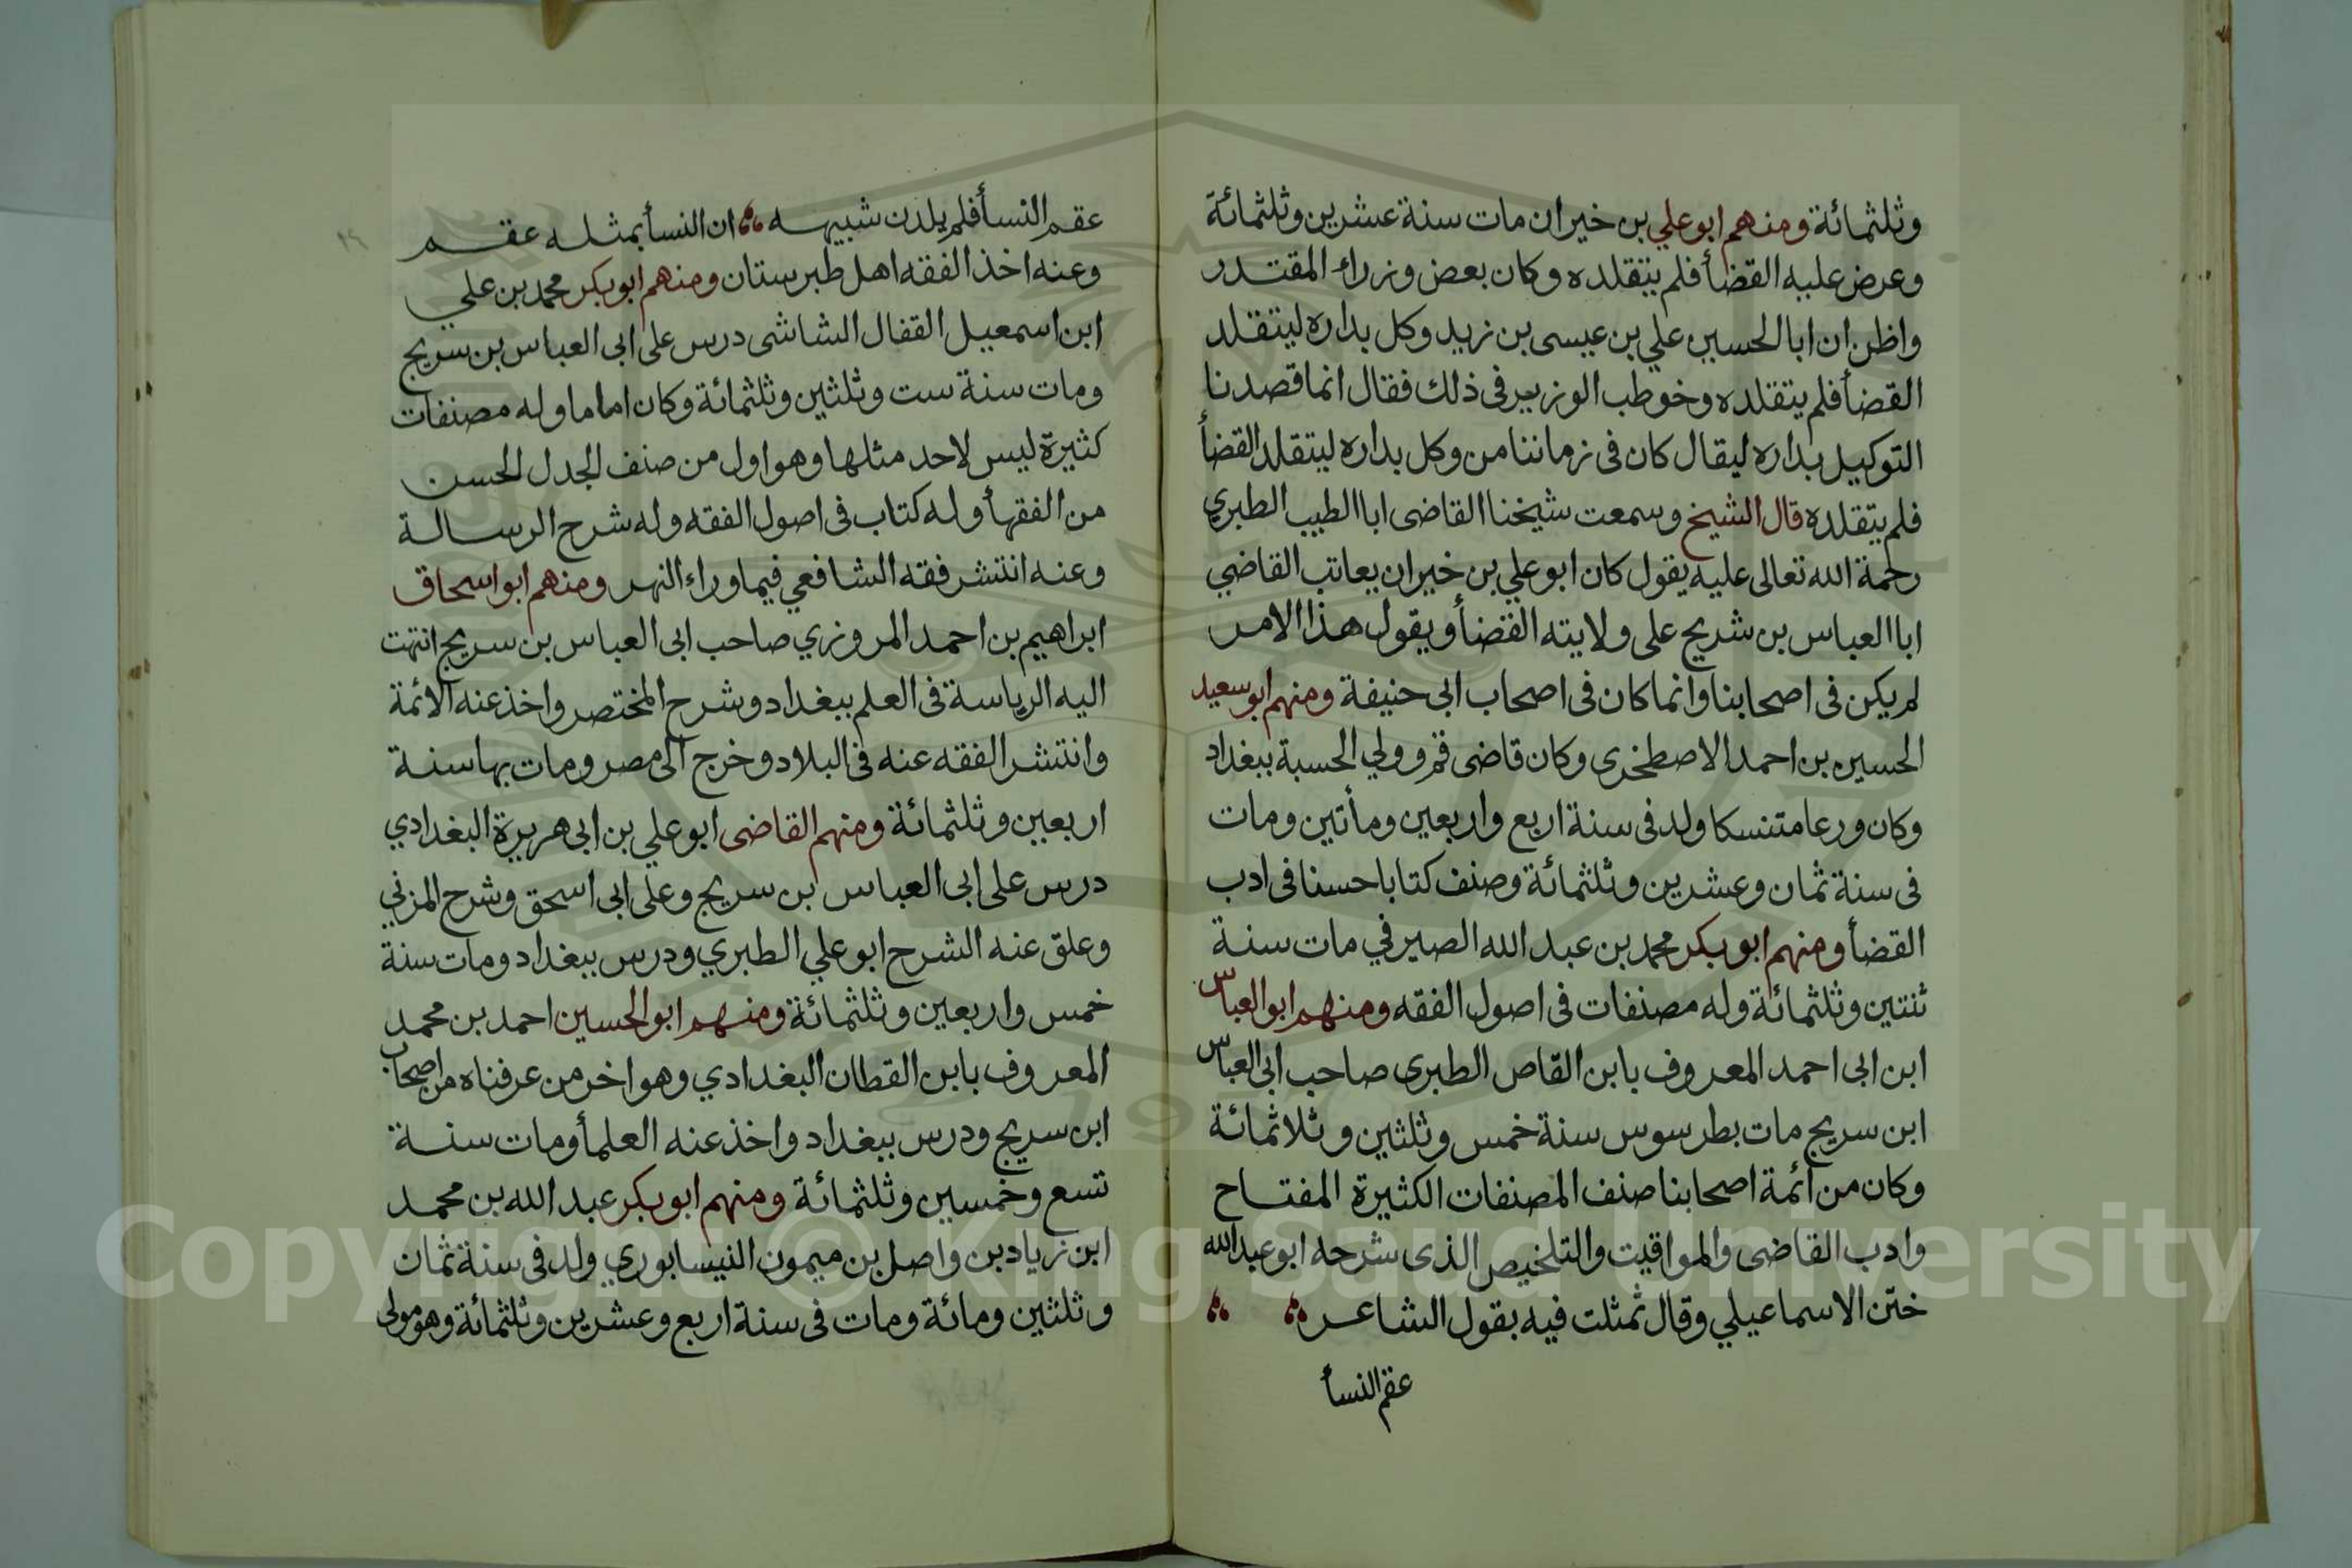 وثلثمائة ومنهم ابو علي بن خيران مات سنة عشرين وثلثمائة
وعرض عليه القضأ فلم يتقلده وكان بعض وزراء المقتدر
واظن ان ابا الحسين علي بن عيسى بن زيد وكل بداره ليتقلد
القضأ فلم يتقلده وخوطب الوزير فى ذلك فقال انما قصدنا
التوكيل بداره ليقال كان فى زماننا من وكل بداره ليتقلد القضأ
فلم يتقلده قال الشيخ وسمعت شيخنا القاضى ابا الطيب الطبري
رحمة الله تعالى عليه يقول كان ابو علي بن خيران يعاتب القاضي
ابا العباس بن شريح على ولايته القضأ ويقول هذا الامر
لم يكن فى اصحابنا وانما كان فى اصحاب ابى حنيفة ومنهم ابو سعيد
الحسين بن احمد الاصطخرى وكان قاضى قم وولي الحسبة ببغداد
وكان ورعا متنسكا ولد فى سنة اربع واربعين ومأتين ومات
فى سنة ثمان وعشرين وثلثمائة وصنف كتابا حسنا فى ادب
القضأ ومنهم ابو بكر محمد بن عبد الله الصيرفي مات سنة
ثنتين وثلثمائة وله مصنفات فى اصول الفقه ومنهم ابو العباس
ابن ابى احمد المعروف بابن القاص الطبرى صاحب ابى العباس
ابن سريج مات بطرسوس سنة خمس وثلثين وثلاثمائة
وكان من أئمة اصحابنا صنف المصنفات الكثيرة المفتاح
وادب القاضى والمواقيت والتلخيص الذى شرحه ابو عبد الله
ختن الاسماعيلي وقال تمثلت فيه بقول الشاعر
عقم النسأ
عقم النسأ فلم يلدن شبيهه ان النسأ بمثله عقم
وعنه اخذ الفقه اهل طبرستان ومنهم ابو بكر محمد بن علي
ابن اسمعيل القفال الشاشى درس على ابى العباس بن سريج
ومات سنة ست وثلثين وثلثمائة وكان اماما وله مصنفات
كثيرة ليس لاحد مثلها وهو اول من صنف الجدل الحسن
من الفقهأ وله كتاب فى اصول الفقه وله شرح الرسالة
وعنه انتشر فقه الشافعي فيما وراء النهر ومنهم ابو اسحاق
ابراهيم بن احمد المروزي صاحب ابى العباس بن سريج انتهت
اليه الرياسة فى العلم ببغداد وشرح المختصر واخذ عنه الائمة
وانتشر الفقه عنه فى البلاد وخرج الى مصر ومات بها سنة
اربعين وثلثمائة ومنهم القاضى ابو علي بن ابى هريرة البغدادي
درس على ابى العباس بن سريج وعلى ابى اسحق وشرح المزني
وعلق عنه الشرح ابو علي الطبري ودرس ببغداد ومات سنة
خمس واربعين وثلثمائة ومنهم ابو الحسين احمد بن محمد
المعروف بابن القطان البغدادي وهو اخر من عرفناه من اصحاب
ابن سريج ودرس ببغداد واخذ عنه العلمأ ومات سنة
تسع وخمسين وثلثمائة ومنهم ابو بكر عبد الله بن محمد
ابن زياد بن واصل بن ميمون النيسابوري ولد فى سنة ثمان
وثلثين ومائة ومات فى سنة اربع وعشرين وثلثمائة وهو مولى
Copyright © King Saud University